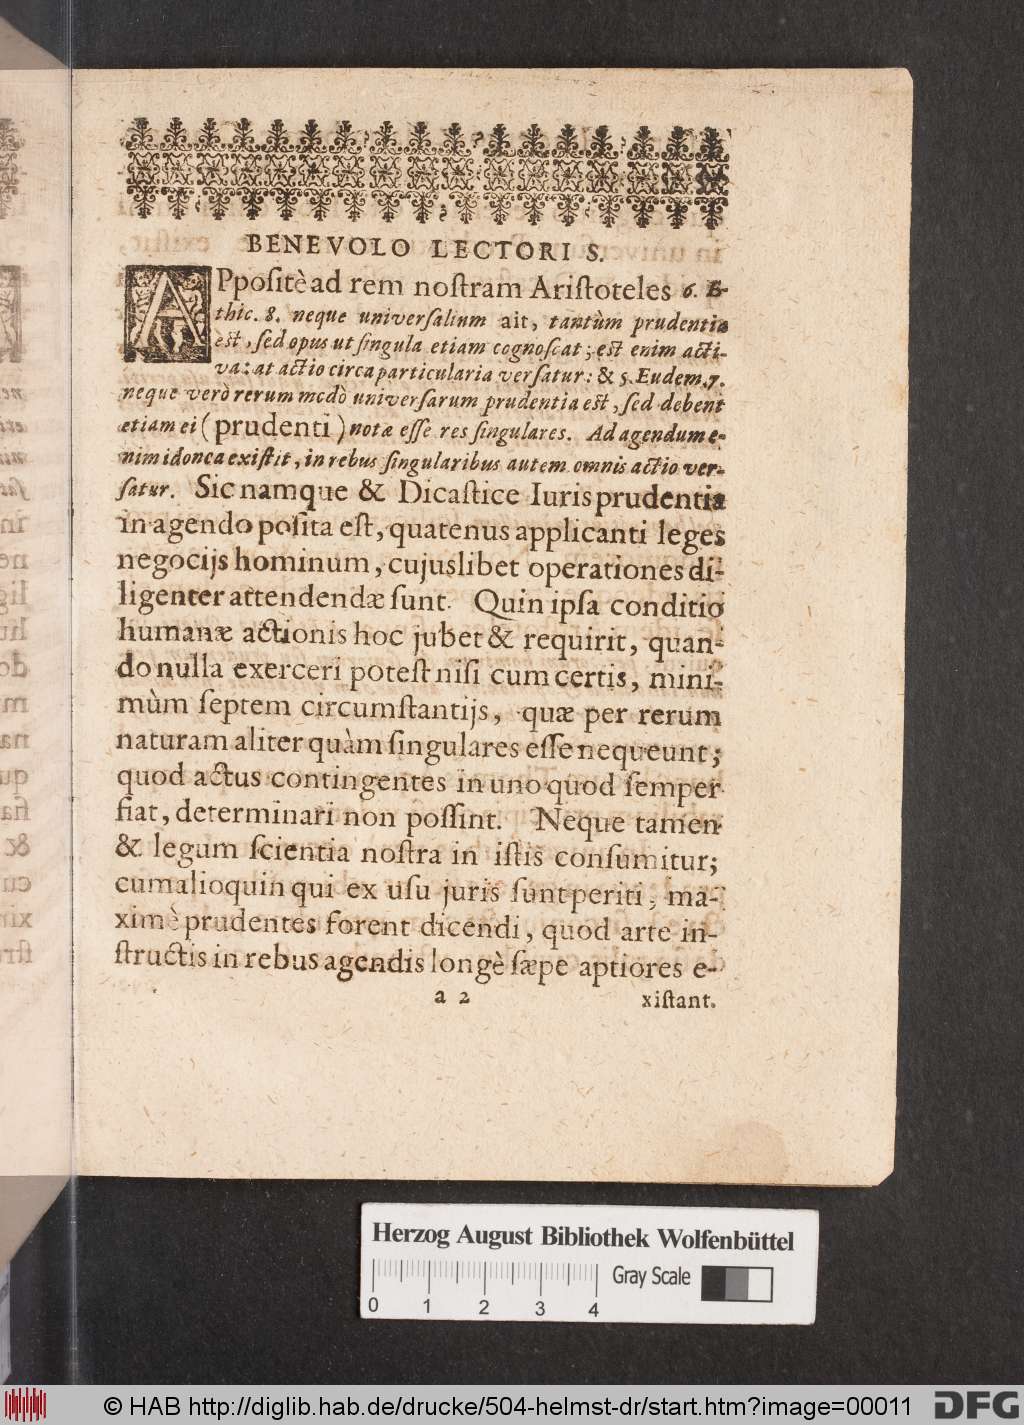 BENEVOLO LECTORI S.
APpositè ad rem nostram Aristoteles 6. E-
thic. 8. neque universalium ait, tantùm prudentia
est, sed opus ut singula etiam cognoscat; est enim acti-
va: at actio circa particularia versatur: & 5. Eudem. 7.
neque verò rerum modò universarum prudentia est, sed debent
etiam ei (prudenti) notæ esse res singulares. Ad agendum e-
nim idonea existit, in rebus singularibus autem omnis actio ver-
satur. Sic namque & Dicastice Iuris prudentia
in agendo posita est, quatenus applicanti leges
negocijs hominum, cujuslibet operationes di-
ligenter attendendæ sunt. Quin ipsa conditio
humanæ actionis hoc jubet & requirit, quan-
do nulla exerceri potest nisi cum certis, mini-
mùm septem circumstantijs, quæ per rerum
naturam aliter quàm singulares esse nequeunt;
quod actus contingentes in uno quod semper
fiat, determinari non possint. Neque tamen
& legum scientia nostra in istis consumitur;
cum alioquin qui ex usu juris sunt periti, ma-
ximè prudentes forent dicendi, quod arte in-
structis in rebus agendis longè sæpe aptiores e-
a 2 xistant.
Herzog August Bibliothek Wolfenbüttel
Gray Scale
0 1 2 3 4
© HAB http://diglib.hab.de/drucke/504-helmst-dr/start.htm?image=00011
DFG